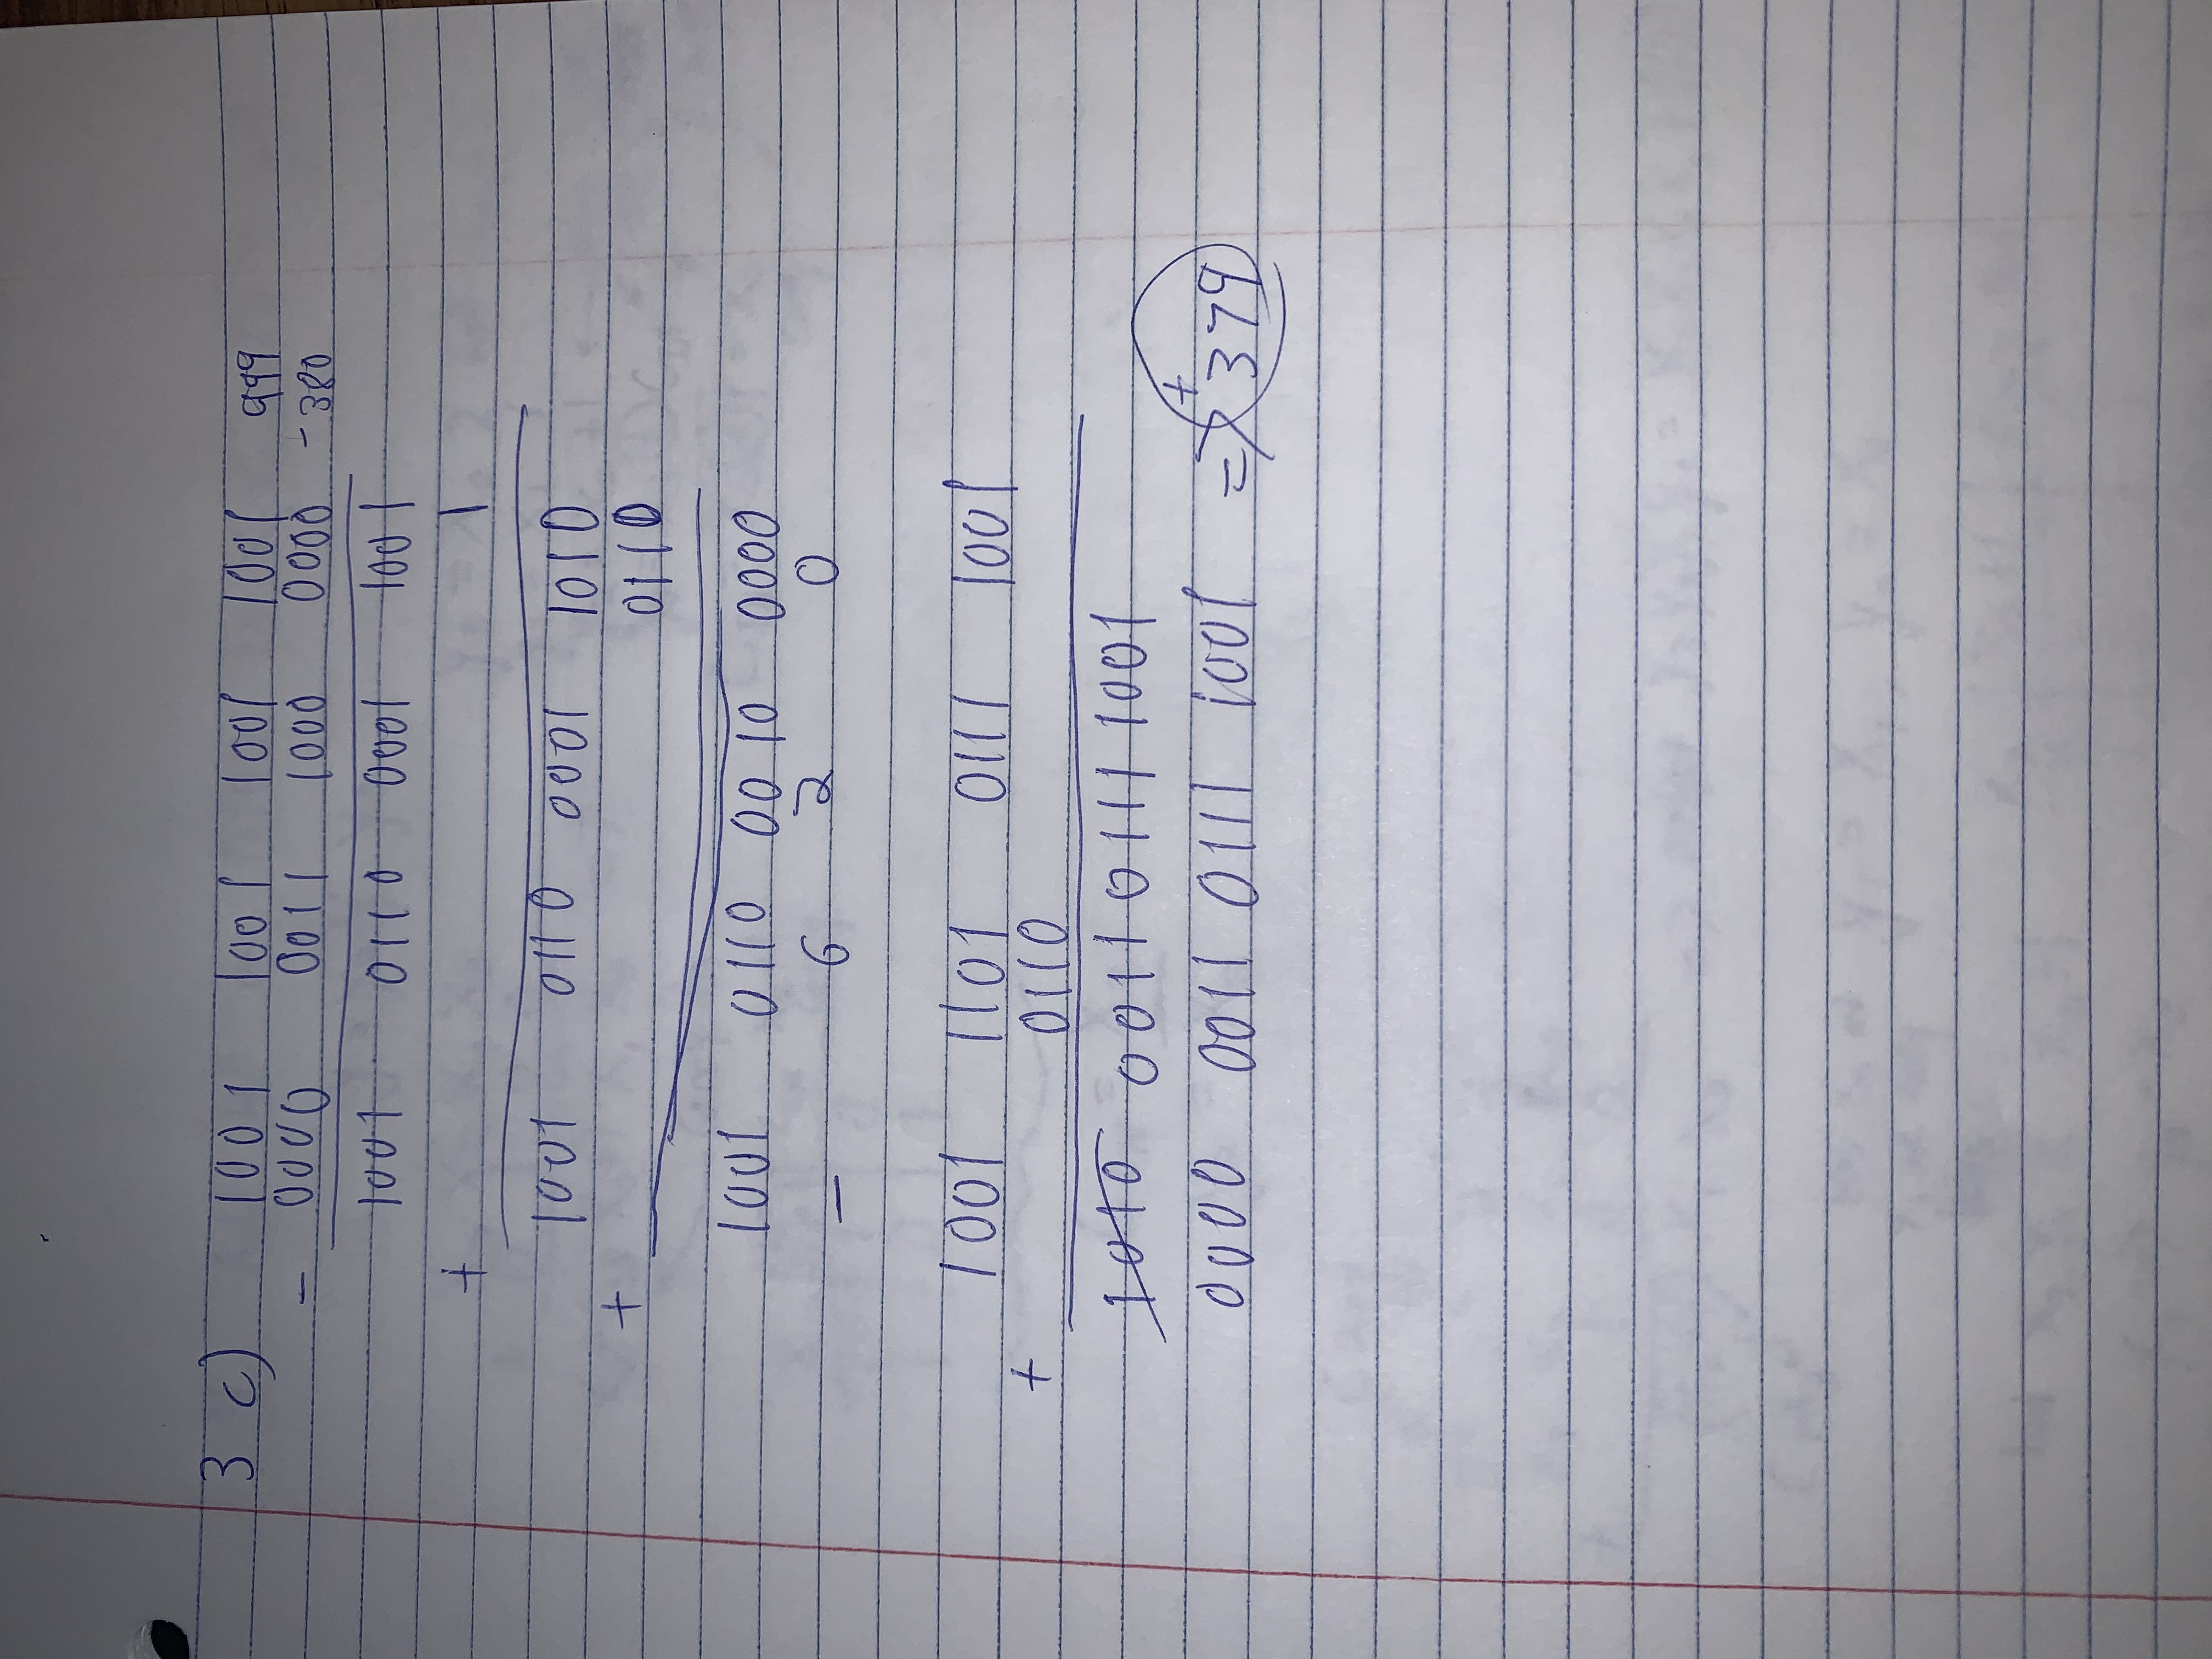 3 c) 1001 1001 1001 1001 999
- 0000 0011 1000 0000 -380
1001 0110 0001 1001
+ 1
1001 0110 0001 1010
+ 0110
1001 0110 0010 0000
- 6 2 0
1001 1101 0111 1001
+ 0110
1010 0011 0111 1001
0000 0011 0111 1001 => +379